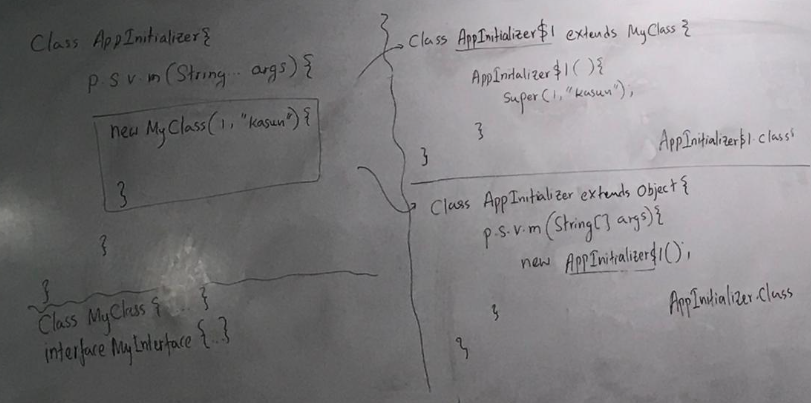 Class AppInitializer{
p s v m (String... args) {
new MyClass(1, "Kasun") {
}
}
}
Class MyClass { ... }
interface MyInterface {..}
}
Class AppInitializer$1 extends MyClass {
AppInitalizer$1 ( ) {
Super(1, "Kasun");
}
}
AppInitializer$1.class
Class AppInitializer extends Object {
p.s.v.m (String[] args) {
new AppInitializer$1();
}
}
AppInitializer.Class